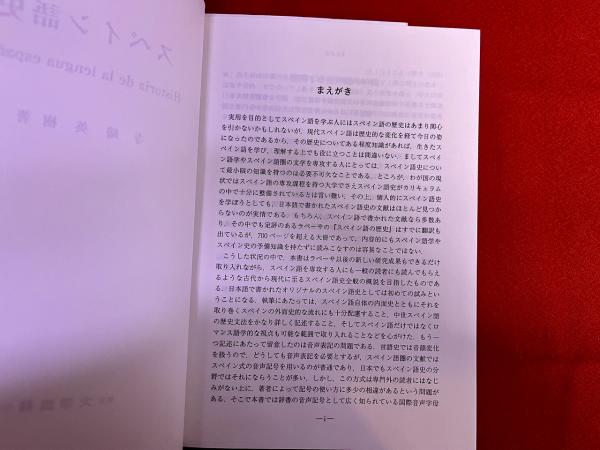 スペイン語史
Historia de la lengua españ
寺﨑英樹著
まえがき
実用を目的としてスペイン語を学ぶ人にはスペイン語の歴史はあまり関心
を引かないかもしれないが、現代スペイン語は歴史的な変化を経て今日の姿
になったのであるから、その歴史についてある程度知識があれば、生きたス
ペイン語を学び、理解する上でも役に立つことは間違いない。ましてスペイ
ン語学やスペイン語圏の文学を専攻する人にとっては、スペイン語史につい
て最小限の知識を持つのは必要不可欠なことである。ところが、わが国の現
状ではスペイン語の専攻課程を持つ大学でさえスペイン語史がカリキュラム
の中で十分に整備されているとは言い難い。その上、個人的にスペイン語史
を学ぼうとしても、日本語で書かれたスペイン語史の文献はほとんど見つか
らないのが実情である。もちろん、スペイン語で書かれた文献なら多数あ
り、その中でも定評のあるラペーサの『スペイン語の歴史』はすでに翻訳も
出ているが、700 ページを超える大冊であって、内容的にもスペイン語学や
スペイン史の予備知識を持たずに読みこなすのは容易なことではない。
こうした状況の中で、本書はラペーサ以後の新しい研究成果もできるだけ
取り入れながら、スペイン語を専攻する人にも一般の読者にも読んでもらえ
るような古代から現代に至るスペイン語史全般の概説を目指したものであ
る。日本語で書かれたオリジナルのスペイン語史としては初めての試みとい
うことになる。執筆にあたっては、スペイン語自体の内面史とともにそれを
取り巻くスペインの外面史的な流れにも十分配慮すること、中世スペイン語
の歴史文法をかなり詳しく記述すること、そしてスペイン語だけではなくロ
マンス語学的な視点も可能な範囲で取り入れることなどを心がけた。もう一
つ記述にあたって留意したのは音声表記の問題である。言語史では音韻変化
を扱うので、どうしても音声表記を必要とするが、スペイン語圏の文献では
スペイン式の音声記号を用いるのが普通であり、日本でもスペイン語史の分
野ではそれにならうことが多い。しかし、この方式は専門外の読者にはなじ
みがない上に、著者によって記号の使い方に多少の相違があるという問題が
ある。そこで本書では辞書の音声記号として広く知られている国際音声字母
—i—